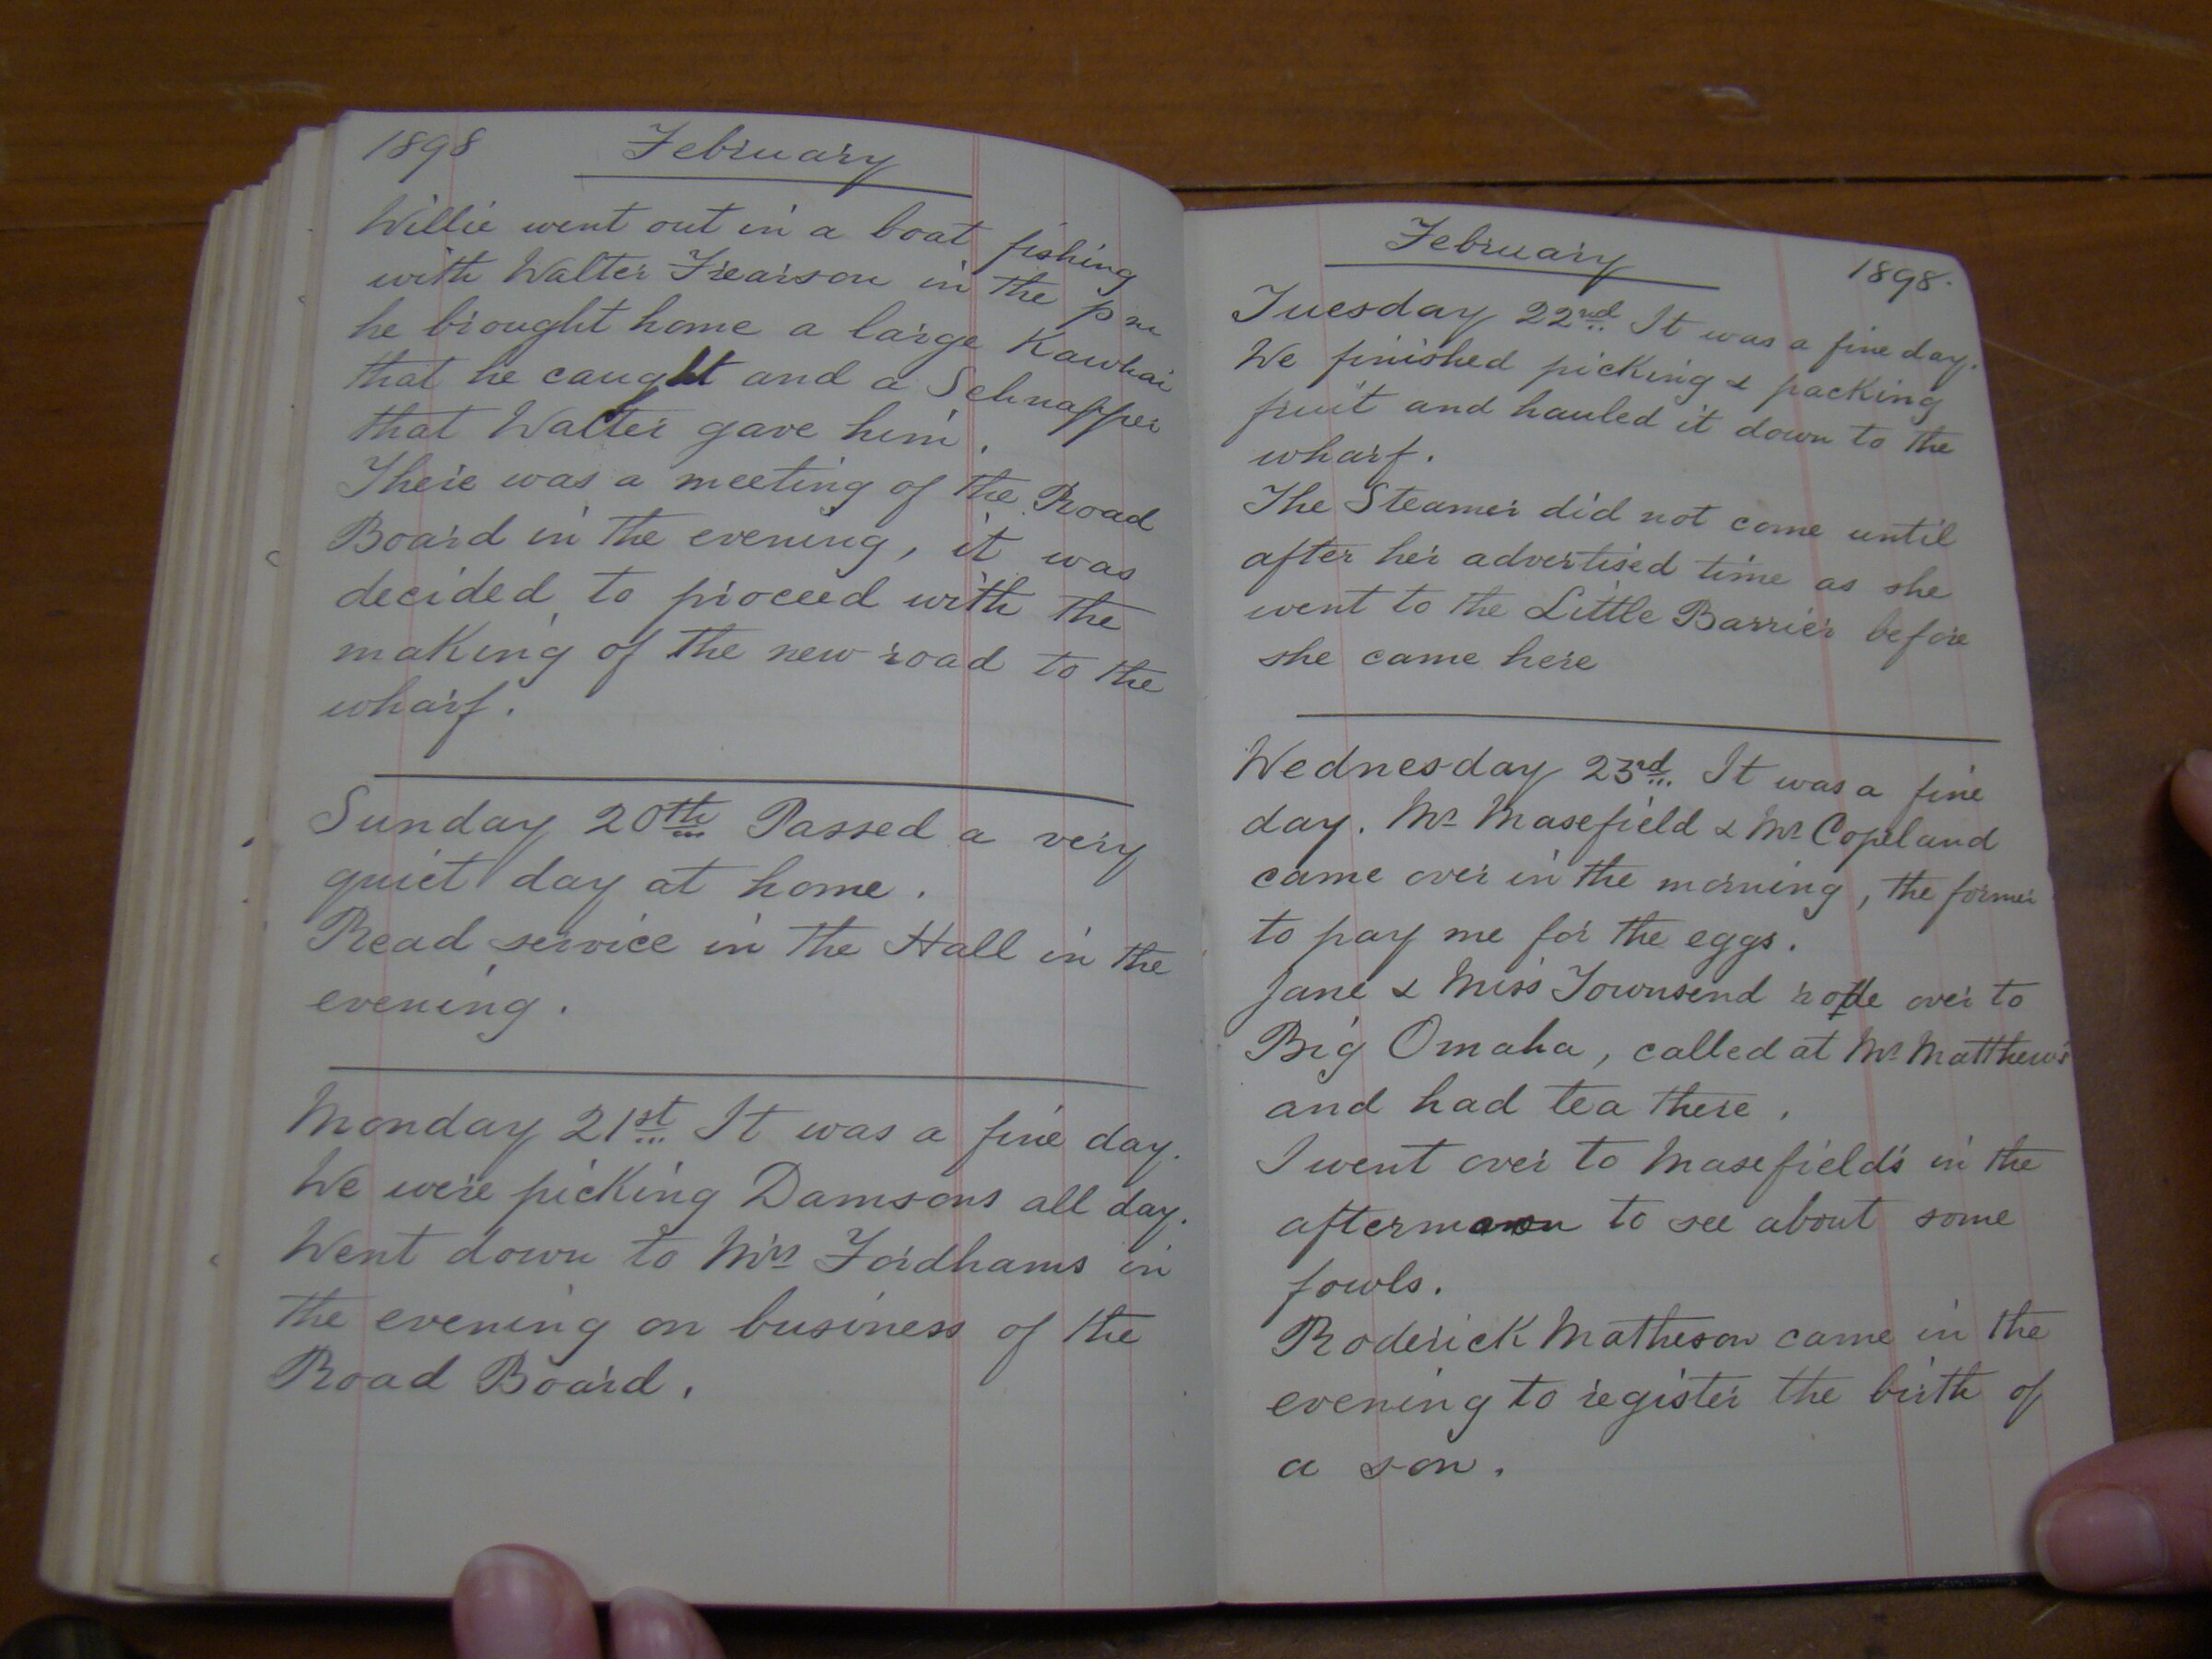 1898 February
Willie went out in a boat fishing
with Walter Frearson in the pm
he brought home a large Kawhai
that he caught and a Schnapper
that Walter gave him.
There was a meeting of the Road
Board in the evening, it was
decided to proceed with the
making of the new road to the
wharf.
Sunday 20th Passed a very
quiet day at home.
Read service in the Hall in the
evening.
Monday 21st It was a fine day.
We were picking Damsons all day.
Went down to Mrs Fordhams in
the evening on business of the
Road Board.
February 1898.
Tuesday 22nd It was a fine day.
We finished picking & packing
fruit and hauled it down to the
wharf.
The Steamer did not come until
after her advertised time as she
went to the Little Barrier before
she came here
Wednesday 23rd It was a fine
day. Mr Masefield & Mr Copeland
came over in the morning, the former
to pay me for the eggs.
Jane & Miss Townsend rode over to
Big Omaha, called at Mr Matthew's
and had tea there.
I went over to Masefield's in the
afternoon to see about some
fowls.
Roderick Matheson came in the
evening to register the birth of
a son.